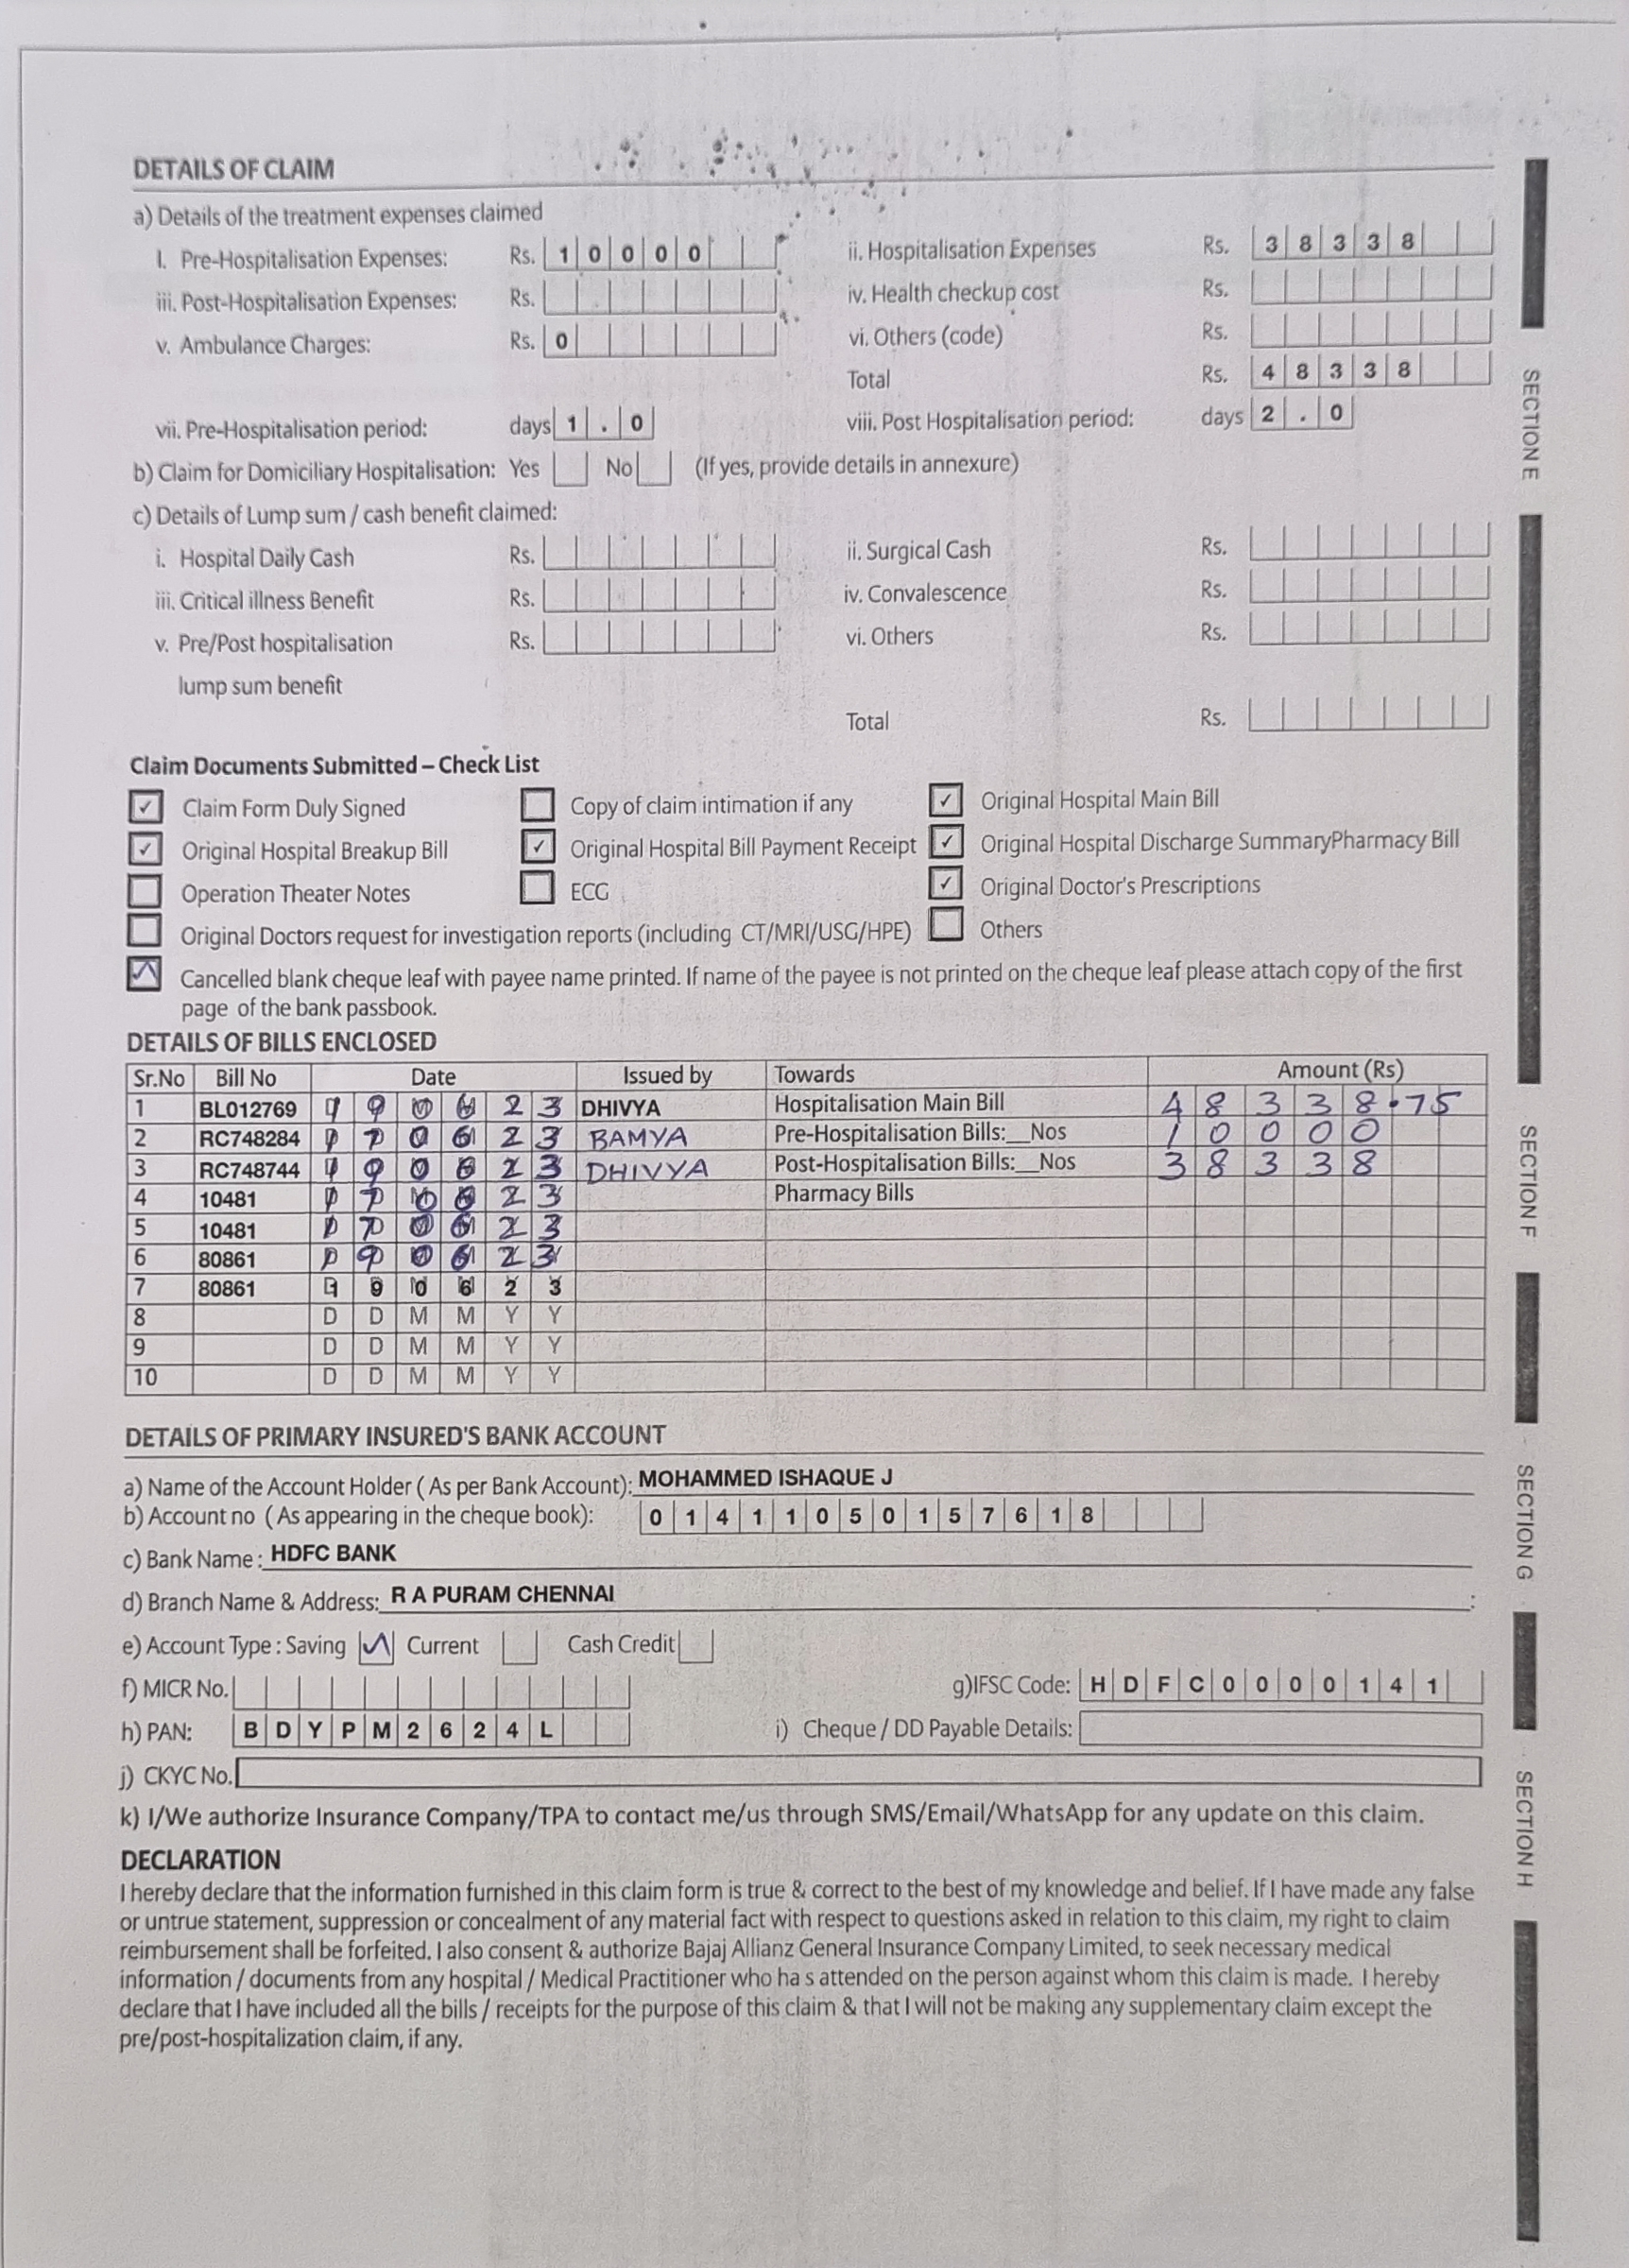 DETAILS OF CLAIM
a) Details of the treatment expenses claimed
I. Pre-Hospitalisation Expenses: Rs. 10000 ii. Hospitalisation Expenses Rs. 38338
iii. Post-Hospitalisation Expenses: Rs. iv. Health checkup cost Rs.
v. Ambulance Charges: Rs. 0 vi. Others (code) Rs.
Total Rs. 48338
vii. Pre-Hospitalisation period: days 1.0 viii. Post Hospitalisation period: days 2.0
b) Claim for Domiciliary Hospitalisation: Yes No (If yes, provide details in annexure)
c) Details of Lump sum / cash benefit claimed:
i. Hospital Daily Cash Rs. ii. Surgical Cash Rs.
iii. Critical illness Benefit Rs. iv. Convalescence Rs.
v. Pre/Post hospitalisation Rs. vi. Others Rs.
lump sum benefit
Total Rs.
Claim Documents Submitted – Check List
✓ Claim Form Duly Signed Copy of claim intimation if any ✓ Original Hospital Main Bill
✓ Original Hospital Breakup Bill ✓ Original Hospital Bill Payment Receipt ✓ Original Hospital Discharge SummaryPharmacy Bill
Operation Theater Notes ECG ✓ Original Doctor's Prescriptions
Original Doctors request for investigation reports (including CT/MRI/USG/HPE) Others
Cancelled blank cheque leaf with payee name printed. If name of the payee is not printed on the cheque leaf please attach copy of the first
page of the bank passbook.
DETAILS OF BILLS ENCLOSED
Sr.No Bill No Date Issued by Towards Amount (Rs)
1 BL012769 9 0 6 2 3 DHIVYA Hospitalisation Main Bill 48338.75
2 RC748284 7 0 6 2 3 BAMYA Pre-Hospitalisation Bills:__Nos 10000
3 RC748744 9 0 6 2 3 DHIVYA Post-Hospitalisation Bills:__Nos 38338
4 10481 7 0 6 2 3 Pharmacy Bills
5 10481 7 0 6 2 3
6 80861 9 0 6 2 3
7 80861 9 0 6 2 3
8 D D M M Y Y
9 D D M M Y Y
10 D D M M Y Y
DETAILS OF PRIMARY INSURED'S BANK ACCOUNT
a) Name of the Account Holder ( As per Bank Account): MOHAMMED ISHAQUE J
b) Account no ( As appearing in the cheque book): 01411050157618
c) Bank Name : HDFC BANK
d) Branch Name & Address: R A PURAM CHENNAI
e) Account Type : Saving Current Cash Credit
f) MICR No. g)IFSC Code: HDFC0000141
h) PAN: BDYPM2624L i) Cheque / DD Payable Details:
j) CKYC No.
k) I/We authorize Insurance Company/TPA to contact me/us through SMS/Email/WhatsApp for any update on this claim.
DECLARATION
I hereby declare that the information furnished in this claim form is true & correct to the best of my knowledge and belief. If I have made any false
or untrue statement, suppression or concealment of any material fact with respect to questions asked in relation to this claim, my right to claim
reimbursement shall be forfeited. I also consent & authorize Bajaj Allianz General Insurance Company Limited, to seek necessary medical
information / documents from any hospital / Medical Practitioner who ha s attended on the person against whom this claim is made. I hereby
declare that I have included all the bills / receipts for the purpose of this claim & that I will not be making any supplementary claim except the
pre/post-hospitalization claim, if any.
SECTION E
SECTION F
SECTION G
SECTION H